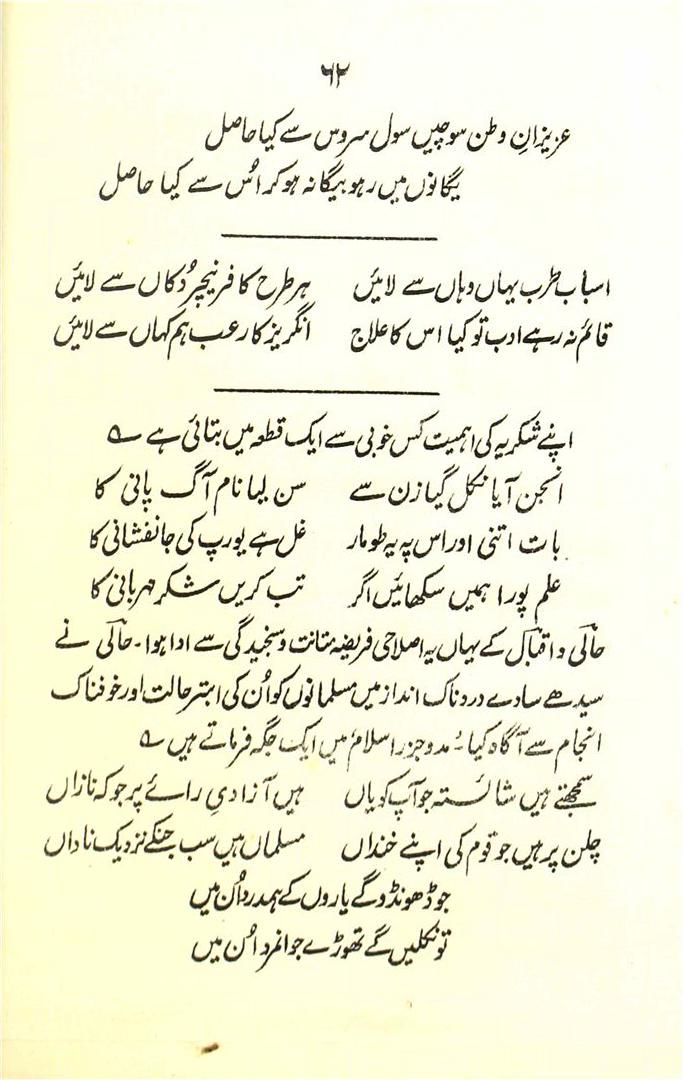 ۶۲
عزیزانِ وطن سوچیں سول سروس سے کیا حاصل
یگانوں میں رہو بیگانہ ہوکر اُس سے کیا حاصل
اسبابِ طرب یہاں وہاں سے لائیں ہر طرح کا فرنیچر دُکاں سے لائیں
قائم نہ رہے ادب تو کیا اس کا علاج انگریز کا رعب ہم کہاں سے لائیں
اپنے شکریہ کی اہمیت کس خوبی سے ایک قطعہ میں بتائی ہے ؎
انجن آیا نکل گیا زن سے سن لیا نام آگ پانی کا
بات اتنی اور اس پہ یہ طومار غل ہے یورپ کی جانفشانی کا
علم پورا ہمیں سکھائیں اگر تب کریں شکر مہربانی کا
حالؔی و اقبالؔ کے یہاں یہ اصلاحی فریضہ متانت و سنجیدگی سے ادا ہوا۔ حالؔی نے
سیدھے سادے دردناک انداز میں مسلمانوں کو اُن کی ابتر حالت اور خوفناک
انجام سے آگاہ کیا۔ مدوجزر اسلام میں ایک جگہ فرماتے ہیں ؎
سمجھتے ہیں شائستہ جو آپ کو یاں ہیں آزادیِ رائے پر جو کہ نازاں
چلن پر ہیں جو قوم کی اپنے خنداں مسلماں ہیں سب جنکے نزدیک ناداں
جو ڈھونڈو گے یاروں کے ہمدرد اُن میں
تو نکلیں گے تھوڑے جوانمرد اُن میں